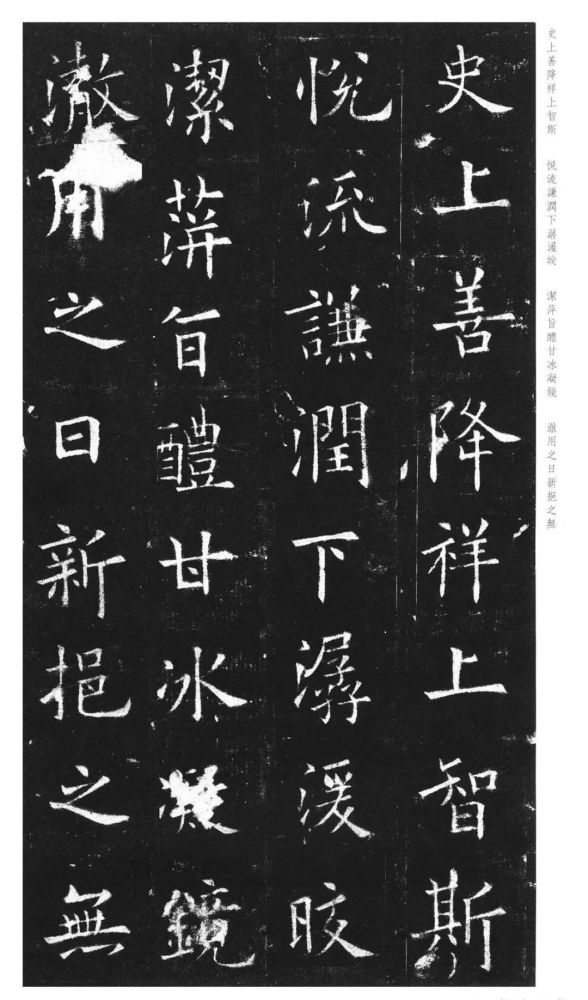 史上善降祥上智斯
悦流謙潤下潺湲皎
潔萍旨醴甘冰凝鏡
澈用之日新挹之無
史上善降祥上智斯 悦流謙潤下潺湲皎 潔萍旨醴甘冰凝鏡 澈用之日新挹之無